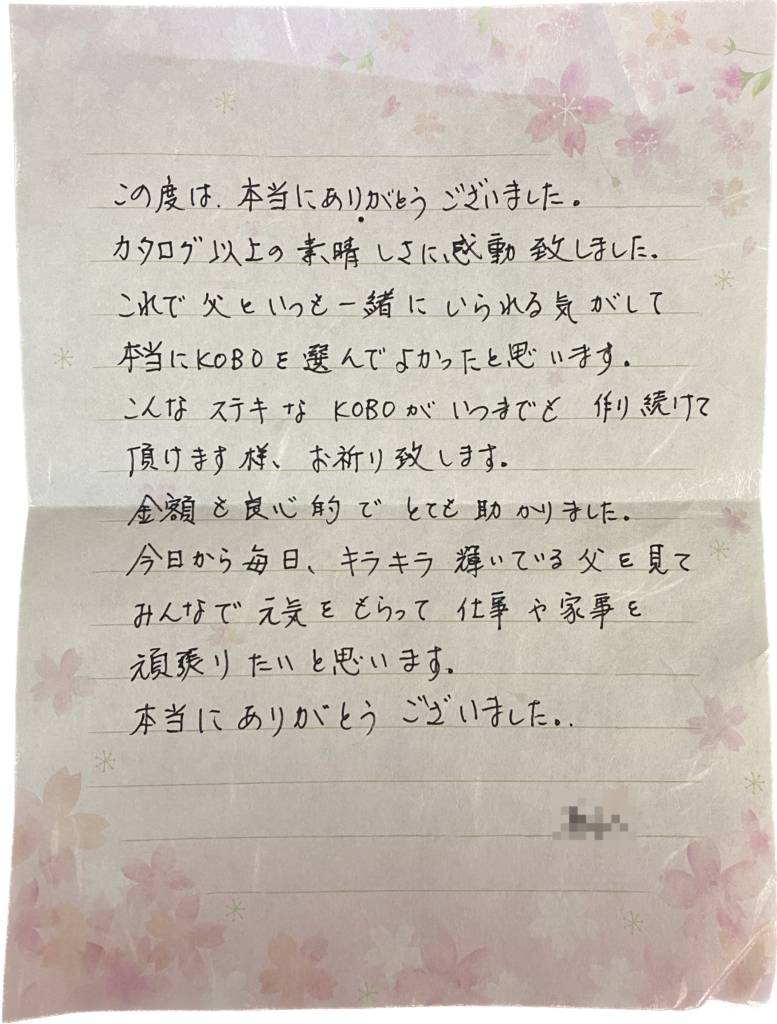 この度は、本当にありがとうございました。
カタログ以上の素晴しさに、感動致しました。
これで父といつも一緒にいられる気がして
本当にKOBOを選んでよかったと思います。
こんなステキなKOBOがいつまでも作り続けて
頂けます様、お祈り致します。
金額も良心的でとても助かりました。
今日から毎日、キラキラ輝いている父を見て
みんなで元気をもらって仕事や家事を
頑張りたいと思います。
本当にありがとうございました。